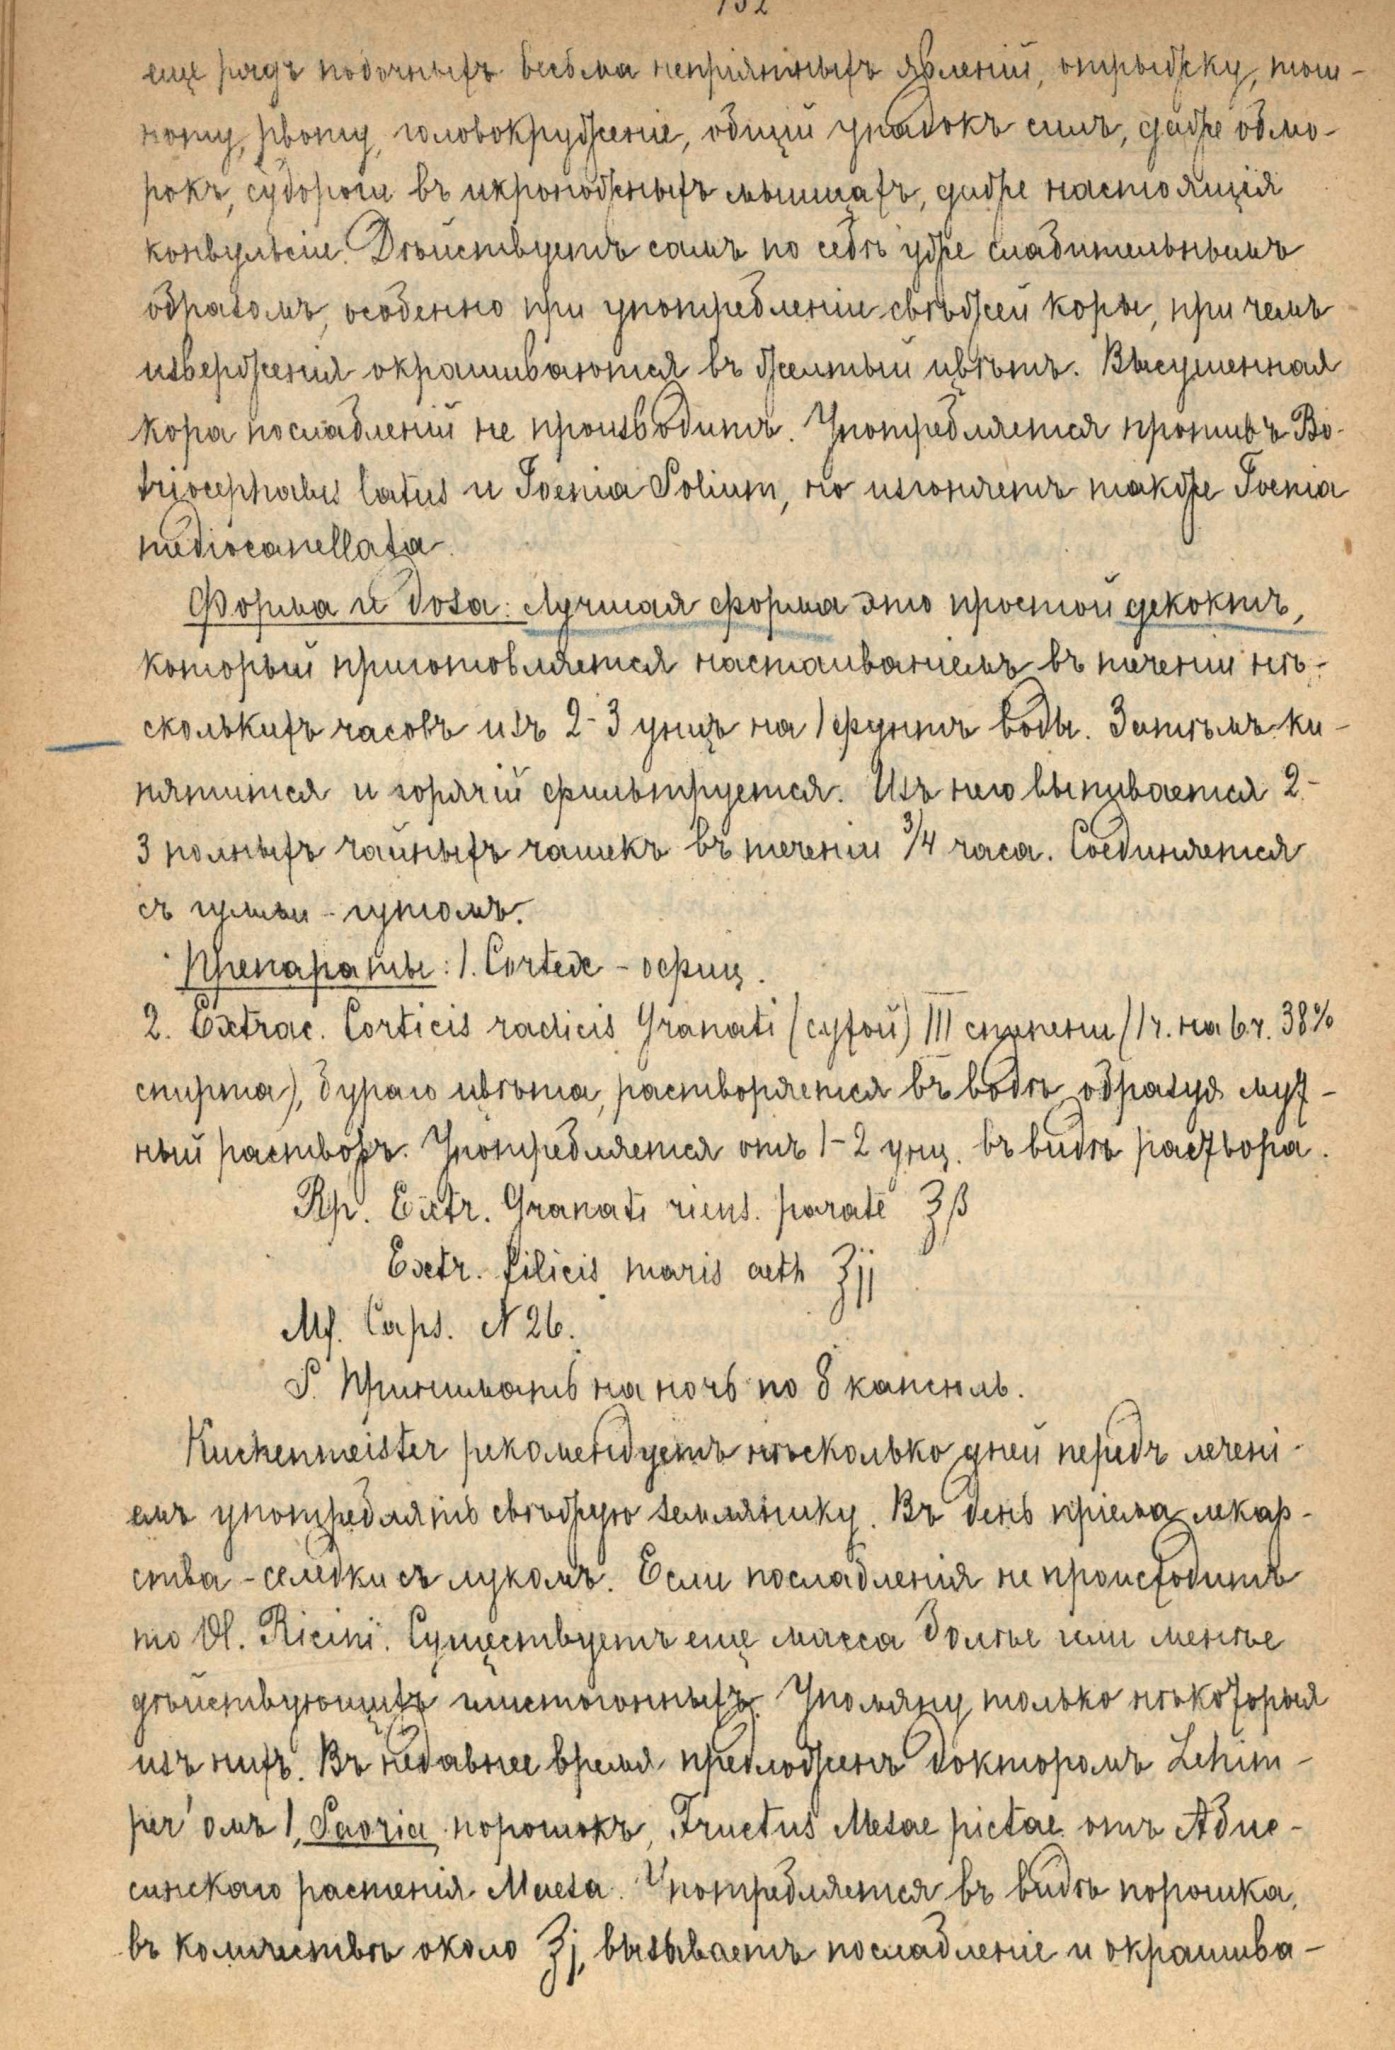 132
еще рядъ побочныхъ весьма непріятныхъ явленій, отрыжку, тош-
ноту, рвоту, головокруженіе, общій упадокъ силъ, даже обмо-
рокъ, судороги въ икроножныхъ мышцахъ, даже настоящія
конвульсіи. Дѣйствуетъ самъ по себѣ уже слабительнымъ
образомъ, особенно при употребленіи свѣжей коры, при чемъ
изверженія окрашиваются въ желтый цвѣтъ. Высушенная
кора послабленій не производитъ. Употребляется противъ Bo-
triocephalus latus и Toenia Solium, но изгоняетъ также Toenia
mediocanellata.
Форма и доза: Лучшая форма это простой декоктъ,
который приготовляется настаиваніемъ въ теченіи нѣ-
сколькихъ часовъ изъ 2-3 унцъ на 1 фунтъ воды. Затѣмъ ки-
пятится и горячій фильтруется. Изъ него выпивается 2-
3 полныхъ чайныхъ чашекъ въ теченіи 3/4 часа. Соединяется
съ гумми-гутомъ.
Препараты: 1. Cortex - офиц.
2. Extrac. Corticis radicis Granati (сухой) III степени (1 ч. на 6 ч. 38%
спирта), бураго цвѣта, растворяется въ водѣ образуя мут-
ный растворъ. Употребляется отъ 1-2 унц. въ видѣ раствора.
Rp. Extr. Granati ricns. parate ʒβ
Extr. filicis maris aeth ʒjj
Mf. Caps. N 26.
S. Принимать на ночь по 8 капсюль.
Kuchenmeister рекомендуетъ нѣсколько дней передъ лечені-
емъ употреблять свѣжую землянику. Въ день пріема лекар-
ства - селедки съ лукомъ. Если послабленія не происходитъ
то Ol. Ricini. Существуетъ еще масса болѣе или менѣе
дѣйствующихъ глистогонныхъ. Упомяну только нѣкоторыя
изъ нихъ. Въ недавнее время предложенъ докторомъ Schim-
per'омъ 1, Saoria порошокъ, Fructus Mesae pictae отъ Абис-
синскаго растенія Maesa. Употребляется въ видѣ порошка,
въ количествѣ около ʒj, вызываетъ послабленіе и окрашива-